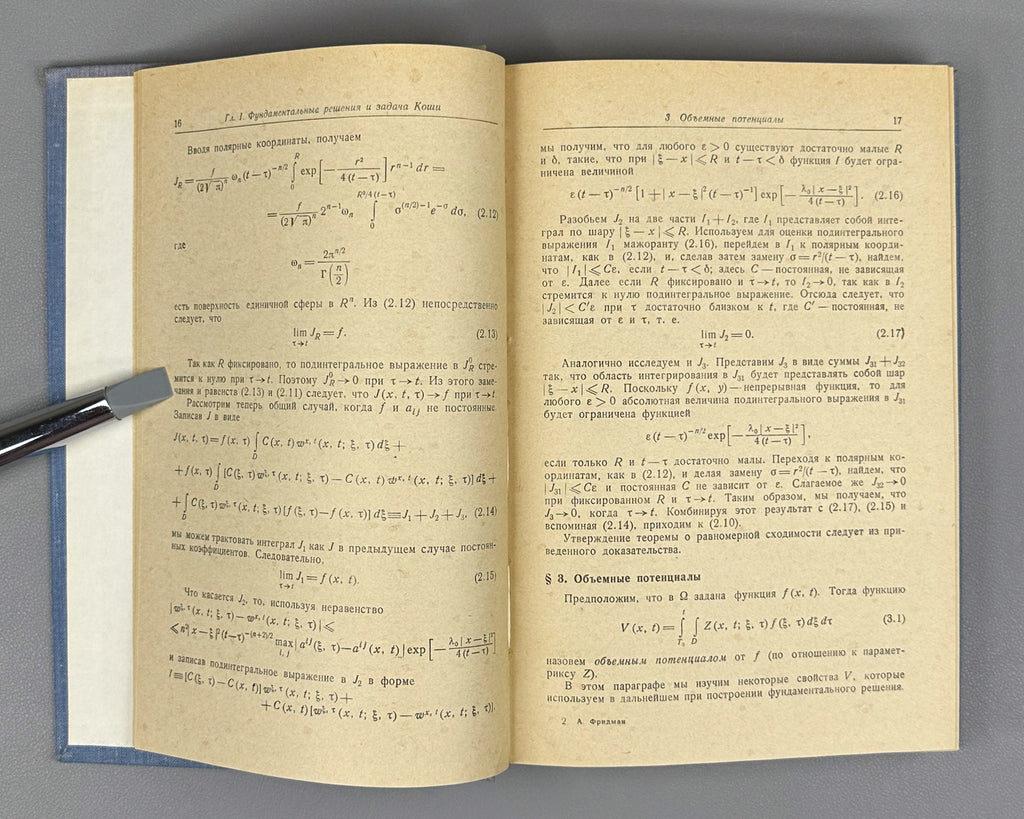 16 Гл. 1. Фундаментальные решения и задача Коши
Вводя полярные координаты, получаем
J_R = f/(2√π)^n ω_n (t — τ)^{-n/2} ∫_0^R exp[— r²/4(t — τ)] r^{n-1} dr =
= f/(2√π)^n 2^{n-1} ω_n ∫_0^{R²/4(t-τ)} σ^{(n/2)-1} e^{-σ} dσ, (2.12)
где
ω_n = 2π^{n/2}/Γ(n/2)
есть поверхность единичной сферы в R^n. Из (2.12) непосредственно
следует, что
lim_{τ→t} J_R = f. (2.13)
Так как R фиксировано, то подинтегральное выражение в J_R^0 стре-
мится к нулю при τ→t. Поэтому J_R^0→0 при τ→t. Из этого заме-
чания и равенств (2.13) и (2.11) следует, что J(x, t, τ)→f при τ→t.
Рассмотрим теперь общий случай, когда f и a_{ij} не постоянные.
Записав J в виде
J(x, t, τ)=f(x, τ) ∫_D C(x, t) w^{x, t}(x, t; ξ, τ) dξ +
+f(x, τ) ∫_D [C(ξ, τ) w^{ξ, τ}(x, t; ξ, τ) — C(x, t) w^{x, t}(x, t; ξ, τ)] dξ+
+∫_D C(ξ, τ) w^{ξ, τ}(x, t; ξ, τ) [f(ξ, τ)—f(x, τ)] dξ≡J_1+J_2+J_3, (2.14)
мы можем трактовать интеграл J_1 как J в предыдущем случае постоян-
ных коэффициентов. Следовательно,
lim_{τ→t} J_1 = f(x, t). (2.15)
Что касается J_2, то, используя неравенство
|w^{ξ, τ}(x, t; ξ, τ)—w^{x, t}(x, t; ξ, τ)|⩽
⩽n²|x—ξ|²(t—τ)^{-(n+2)/2} max_{i, j}|a^{ij}(ξ, τ)—a^{ij}(x, t)| exp[— λ_0|x—ξ|²/4(t—τ)]
и записав подинтегральное выражение в J_2 в форме
I≡[C(ξ, τ)—C(x, t)] w^{ξ, τ}(x, t; ξ, τ)+
+C(x, t)[w^{ξ, τ}(x, t; ξ, τ) — w^{x, t}(x, t; ξ, τ)],
3 Объемные потенциалы 17
мы получим, что для любого ε>0 существуют достаточно малые R
и δ, такие, что при |ξ—x|⩽R и t—τ<δ функция I будет огра-
ничена величиной
ε(t — τ)^{-n/2} [1+|x — ξ|²(t—τ)^{-1}] exp[— λ_0|x—ξ|²/4(t—τ)]. (2.16)
Разобьем J_2 на две части I_1+I_2, где I_1 представляет собой инте-
грал по шару |ξ—x|⩽R. Используем для оценки подинтегрального
выражения I_1 мажоранту (2.16), перейдем в I_1 к полярным коорди-
натам, как в (2.12), и, сделав затем замену σ=r²/(t—τ), найдем,
что |I_1|⩽Cε, если t—τ<δ; здесь C—постоянная, не зависящая
от ε. Далее если R фиксировано и τ→t, то I_2→0, так как в I_2
стремится к нулю подинтегральное выражение. Отсюда следует, что
|J_2|<C′ε при τ достаточно близком к t, где C′—постоянная, не
зависящая от ε и τ, т. е.
lim_{τ→t} J_2=0. (2.17)
Аналогично исследуем и J_3. Представим J_3 в виде суммы J_{31}+J_{32}
так, что область интегрирования в J_{31} будет представлять собой шар
|ξ—x|⩽R. Поскольку f(x, y)—непрерывная функция, то для
любого ε>0 абсолютная величина подинтегрального выражения в J_{31}
будет ограничена функцией
ε(t—τ)^{-n/2} exp[— λ_0|x—ξ|²/4(t—τ)],
если только R и t—τ достаточно малы. Переходя к полярным ко-
ординатам, как в (2.12), и делая замену σ=r²/(t —τ), найдем, что
|J_{31}|⩽Cε и постоянная C не зависит от ε. Слагаемое же J_{32}→0
при фиксированном R и τ→t. Таким образом, мы получаем, что
J_3→0, когда τ→t. Комбинируя этот результат с (2.17), (2.15) и
вспоминая (2.14), приходим к (2.10).
Утверждение теоремы о равномерной сходимости следует из при-
веденного доказательства.
§ 3. Объемные потенциалы
Предположим, что в Ω задана функция f(x, t). Тогда функцию
V(x, t)= ∫_{T_0}^t ∫_D Z(x, t; ξ, τ) f(ξ, τ) dξ dτ (3.1)
назовем объемным потенциалом от f (по отношению к парамет-
риксу Z).
В этом параграфе мы изучим некоторые свойства V, которые
используем в дальнейшем при построении фундаментального решения.
2 А. Фридман